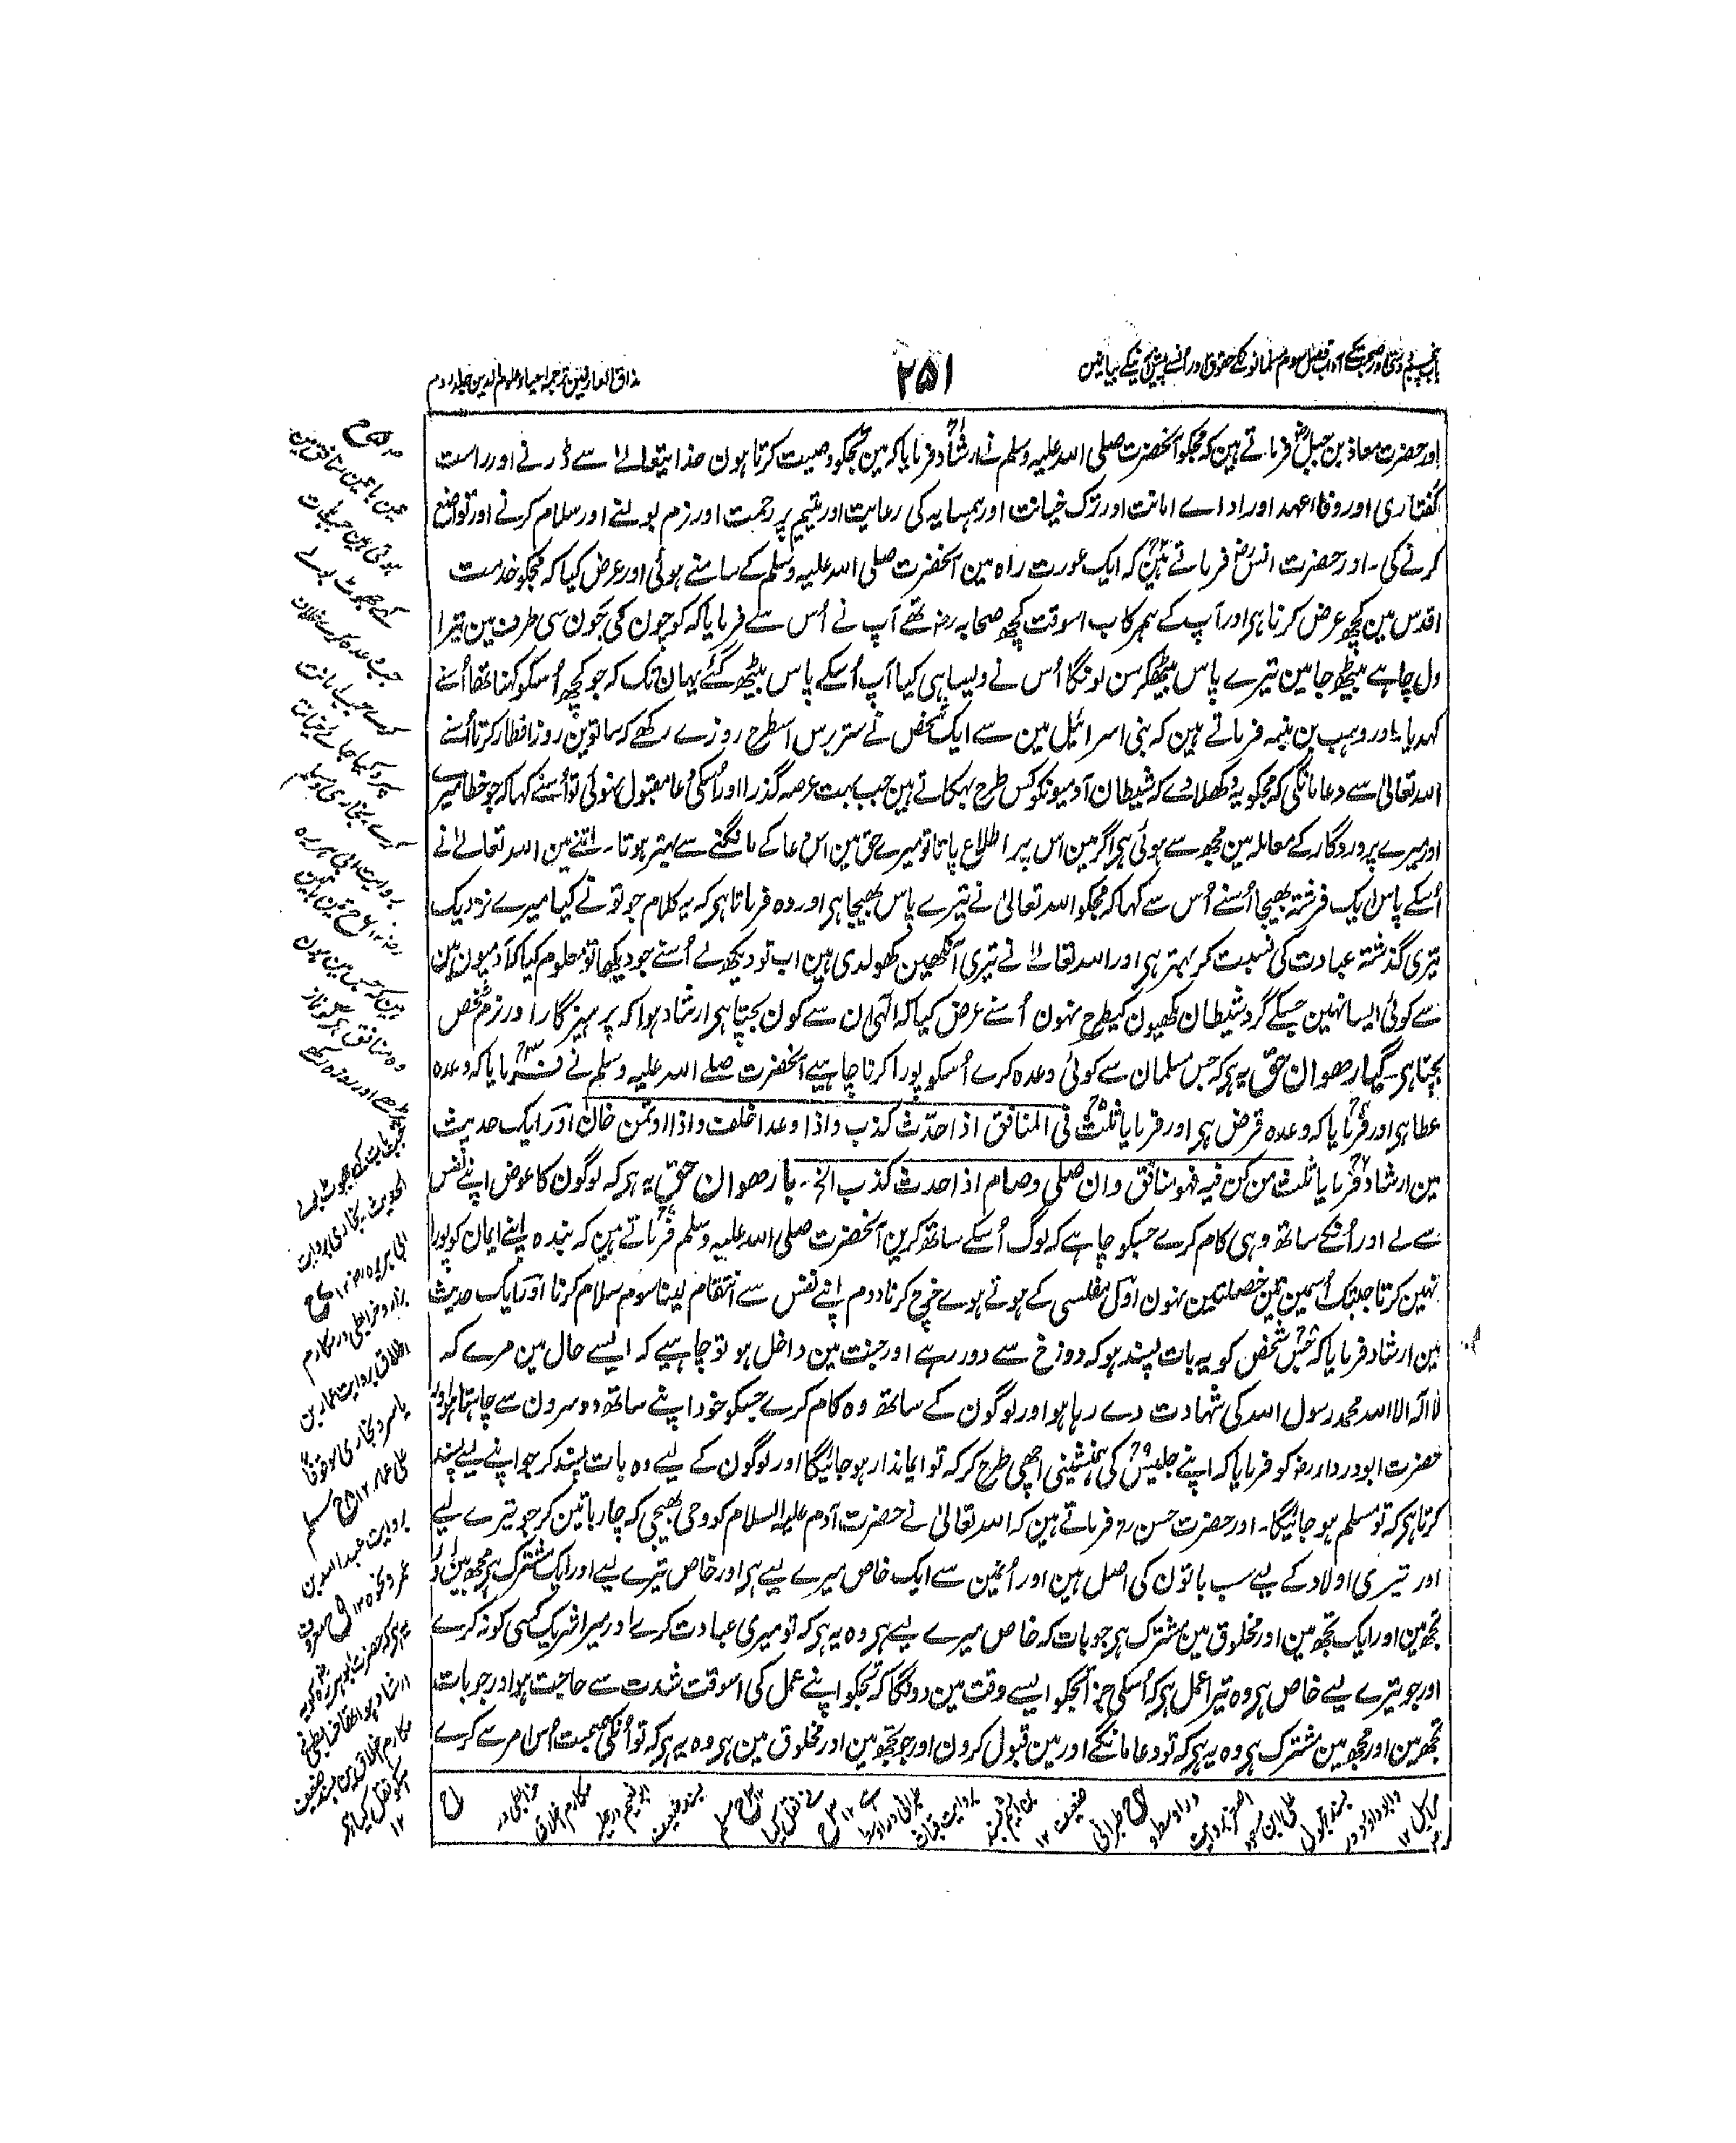 باب پنجم دوستی اور صحبت کے آداب فصل سوم مسلمانونکے حقوق اور انسے پیش آنیکے بیانمین
۲۵۱
مذاق العارفین ترجمہ احیاء علوم الدین جلد دوم
اور حضرت معاذ بن جبلؓ فرماتے ہین کہ مجکو آنحضرت صلی اللہ علیہ وسلم نے ارشاد فرمایا کہ مین تجکو وصیت کرتا ہون خدایتعالےٰ سے ڈرنے اور راست
گفتاری اور وفاء عہد اور اداے امانت اور ترک خیانت اور ہمسایہ کی رعایت اور یتیم پر رحمت اور نرم بولنے اور سلام کرنے اور تواضع
کرنے کی۔ اور حضرت انسؓ فرماتے ہین کہ ایک عورت راہ مین آنحضرت صلی اللہ علیہ وسلم کے سامنے ہوئی اور عرض کیا کہ مجکو خدمت
اقدس مین کچھ عرض کرنا ہی اور آپ کے ہمرکاب اسوقت کچھ صحابہ رضہ تھے آپ نے اُس سے فرمایا کہ کوچون کی جون سی طرف مین تیرا
دل چاہے بیٹھ جا مین تیرے پاس بیٹھکر سن لونگا اُس نے ویسا ہی کیا آپ اُسکے پاس بیٹھ گئے یہان تک کہ جو کچھ اُسکو کہنا تھا اُسنے
کہدیا۔ اور وہب بن منبہ فرماتے ہین کہ بنی اسرائیل مین سے ایک شخص نے ستر برس اسطرح روزے رکھے کہ ساتوین روز افطار کرتا اُسنے
اللہ تعالیٰ سے دعا مانگی کہ مجکو یہ دکھلادے کہ شیطان آدمیونکو کس طرح بہکاتے ہین جب بہت عرصہ گذرا اور اُسکی دعا مقبول نہوئی تو اُسنے کہا کہ جو خطا میرے
اور میرے پروردگار کے معاملہ مین مجھ سے ہوئی ہی اگر مین اس پر اطلاع پاتا تو میرے حق مین اس دعا کے مانگنے سے بہتر ہوتا۔ اتنے مین اللہ تعالےٰ نے
اُسکے پاس ایک فرشتہ بھیجا اُسنے اُس سے کہا کہ مجکو اللہ تعالیٰ نے تیرے پاس بھیجا ہی اور وہ فرماتا ہی کہ یہ کلام جو تو نے کیا میرے نزدیک
تیری گذشتہ عبادت کی نسبت کر بہتر ہی اور اللہ تعالےٰ نے تیری آنکھین کھولدی ہین اب تو دیکھ لے اُسنے جو دیکھا تو معلوم کیا کہ آدمیون مین
سے کوئی ایسا نہین جسکے گرد شیطان مکھیون کیطرح نہون اُسنے عرض کیا کہ الٰہی ان سے کون بچتا ہی ارشاد ہوا کہ پرہیزگار اور نرم شخص
بچتا ہی۔ گیارھوان حق یہ ہی کہ جس مسلمان سے کوئی وعدہ کرے اُسکو پورا کرنا چاہیے آنحضرت صلے اللہ علیہ وسلم نے فرمایا کہ وعدہ
عطا ہی اور فرمایا کہ وعدہ قرض ہی اور فرمایا ثلٰث فی المنافق اذا حدّث کذب واذا وعد اخلف واذا اوتمن خان اور ایک حدیث
مین ارشاد فرمایا ثلٰث من کن فیہ فہو منافق وان صلی وصام اذا حدث کذب الخ۔ بارھوان حق یہ ہی کہ لوگون کا عوض اپنے نفس
سے لے اور اُنکے ساتھ وہی کام کرے جسکو چاہے کہ لوگ اُسکے ساتھ کرین آنحضرت صلی اللہ علیہ وسلم فرماتے ہین کہ بندہ اپنے ایمان کو پورا
نہین کرتا جبتک اُسمین تین خصلتین نہون اوّل مفلسی کے ہوتے ہوے خرچ کرنا دوم اپنے نفس سے انتقام لینا سوم سلام کرنا اور ایک حدیث
مین ارشاد فرمایا کہ جس شخص کو یہ بات پسند ہو کہ دوزخ سے دور رہے اور جنت مین داخل ہو تو چاہیے کہ ایسے حال مین مرے کہ
لا الہ الا اللہ محمد رسول اللہ کی شہادت دے رہا ہو اور لوگون کے ساتھ وہ کام کرے جسکو خود اپنے ساتھ دوسرون سے چاہتا ہو اور
حضرت ابودرداء رضہ کو فرمایا کہ اپنے جلیس کی ہمنشینی اچھی طرح کر کہ تو ایماندار ہو جائیگا اور لوگون کے لیے وہ بات پسند کر جو اپنے لیے پسند
کرتا ہی کہ تو مسلم ہو جائیگا۔ اور حضرت حسن رہ فرماتے ہین کہ اللہ تعالیٰ نے حضرت آدم علیہ السلام کو وحی بھیجی کہ چار باتین کر جو تیرے لیے
اور تیری اولاد کے لیے سب باتون کی اصل ہین اور اُنمین سے ایک خاص میرے لیے ہی اور خاص تیرے لیے اور ایک مشترک ہی مجھ مین اور
تجھ مین اور ایک تجھ مین اور مخلوق مین مشترک ہی جو بات کہ خاص میرے لیے ہی وہ یہ ہی کہ تو میری عبادت کرے اور میرا شریک کسی کو نہ کرے
اور جو تیرے لیے خاص ہی وہ تیرا عمل ہی کہ اُسکی جزا تجکو ایسے وقت مین دونگا کہ تجکو اپنے عمل کی اسوقت شدت سے حاجت ہو اور جو بات
تجھ مین اور مجھ مین مشترک ہی وہ یہ ہی کہ تو دعا مانگے اور مین قبول کرون اور جو تجھ مین اور مخلوق مین ہی وہ یہ ہی کہ تو اُنکی صحبت اُس امر سے کرے
تین باتین منافق مین
ہوتی ہین جب بات
کہے جھوٹ بولے
جب وعدہ کرے خلاف
کرے جب امانت
سپرد کیجاے خیانت
کرے بخاری ومسلم
بروایت ابی ہریرہ
وہ منافق ہی گو نماز
پڑھے اور روزہ رکھے
جب بات کہے جھوٹ بولے
الحدیث بخاری بروایت
ابی ہریرہ رضہ ۱۲
بزار و خرائطی در مکارم
اخلاق بروایت عمار بن
یاسر و بخاری موقوفاً
علی عمار ۱۲ مسلم
بروایت عبداللہ بن
عمرو نحوہ ۱۲